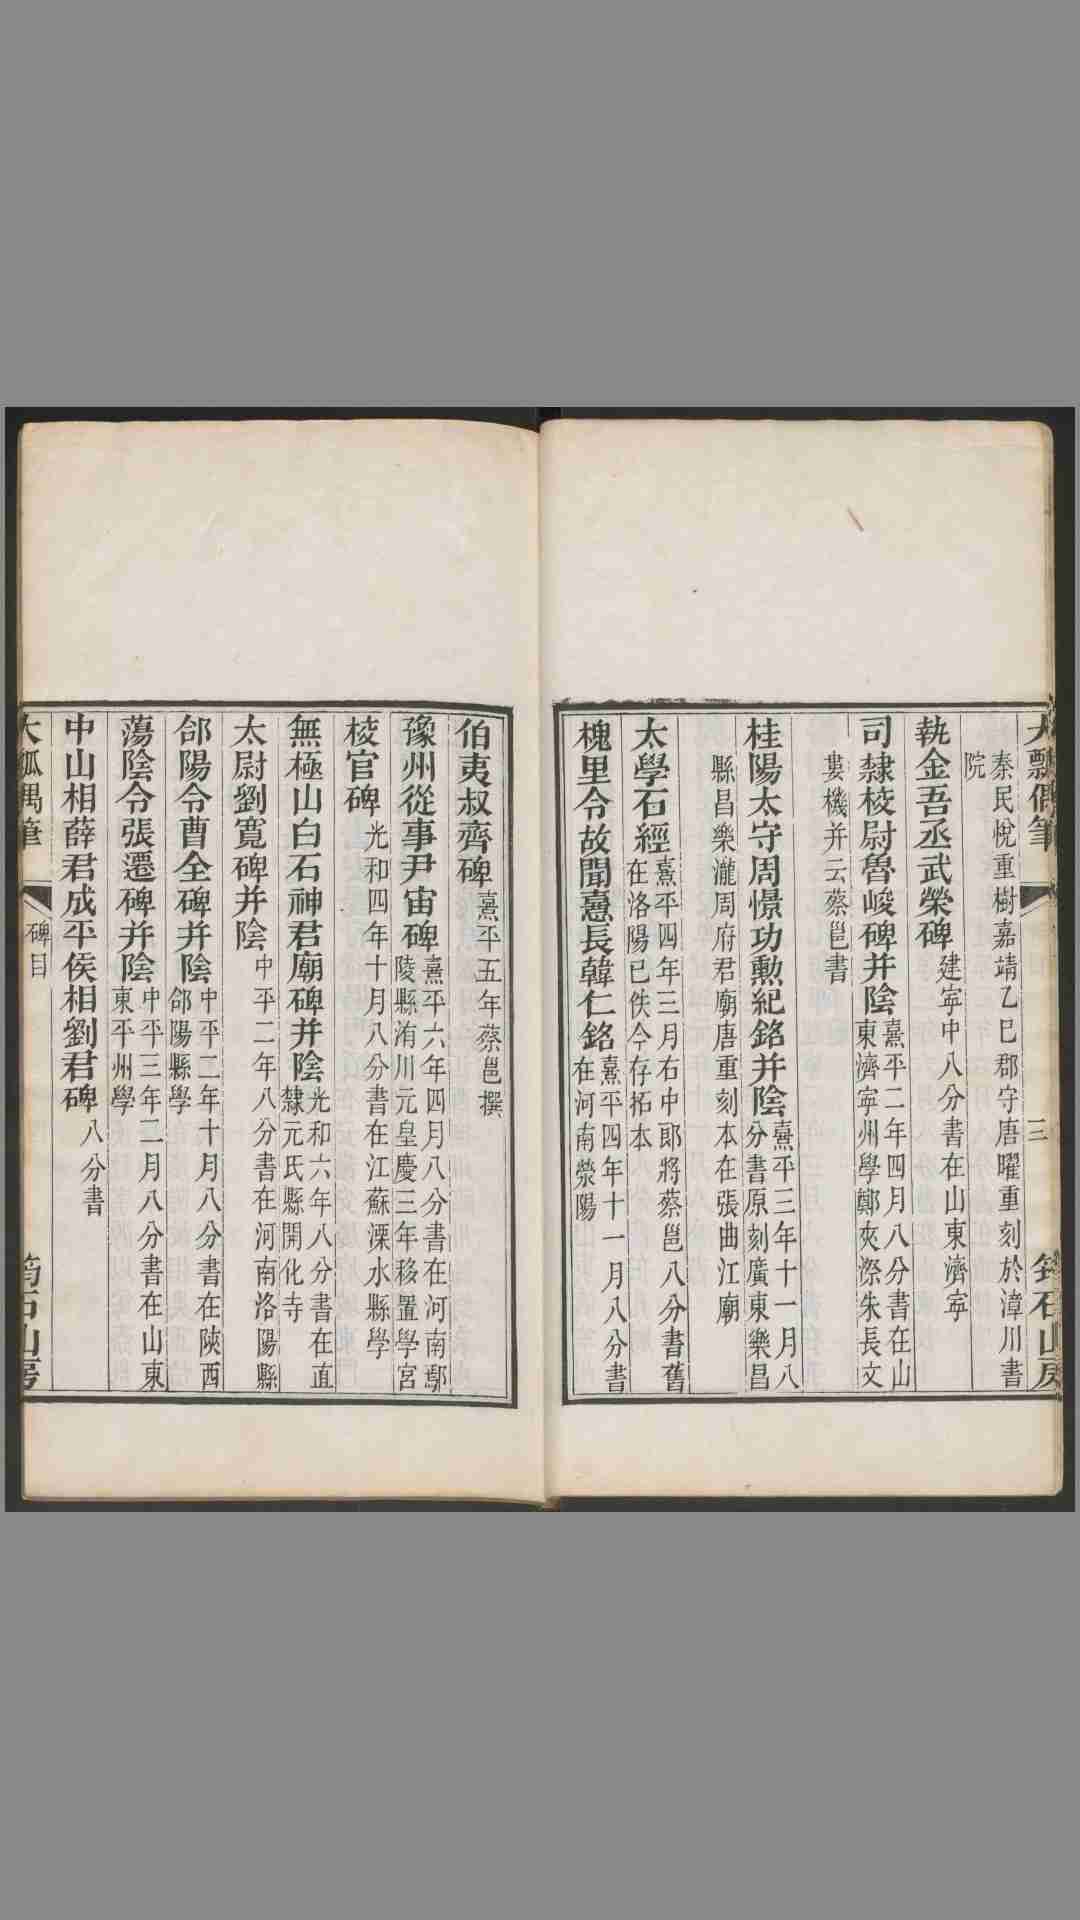 大瓢偶筆
三
筠石山房
秦民悅重樹嘉靖乙巳郡守唐曜重刻於漳川書
院
執金吾丞武榮碑建寕中八分書在山東濟寕
司隸校尉魯峻碑并陰熹平二年四月八分書在山
東濟寕州學鄭夾漈朱長文
婁機并云蔡邕書
桂陽太守周憬功勲紀銘并陰熹平三年十一月八
分書原刻廣東樂昌
縣昌樂瀧周府君廟唐重刻本在張曲江廟
太學石經熹平四年三月右中郎將蔡邕八分書舊
在洛陽已佚今存拓本
槐里令故聞憙長韓仁銘熹平四年十一月八分書
在河南滎陽
伯夷叔齊碑熹平五年蔡邕撰
豫州從事尹宙碑熹平六年四月八分書在河南鄢
陵縣洧川元皇慶三年移置學宮
校官碑光和四年十月八分書在江蘇溧水縣學
無極山白石神君廟碑并陰光和六年八分書在直
隸元氏縣開化寺
太尉劉寬碑并陰中平二年八分書在河南洛陽縣
郃陽令曹全碑并陰中平二年十月八分書在陝西
郃陽縣學
蕩陰令張遷碑并陰中平三年二月八分書在山東
東平州學
中山相薛君成平侯相劉君碑八分書
大瓢偶筆
碑目
筠石山房